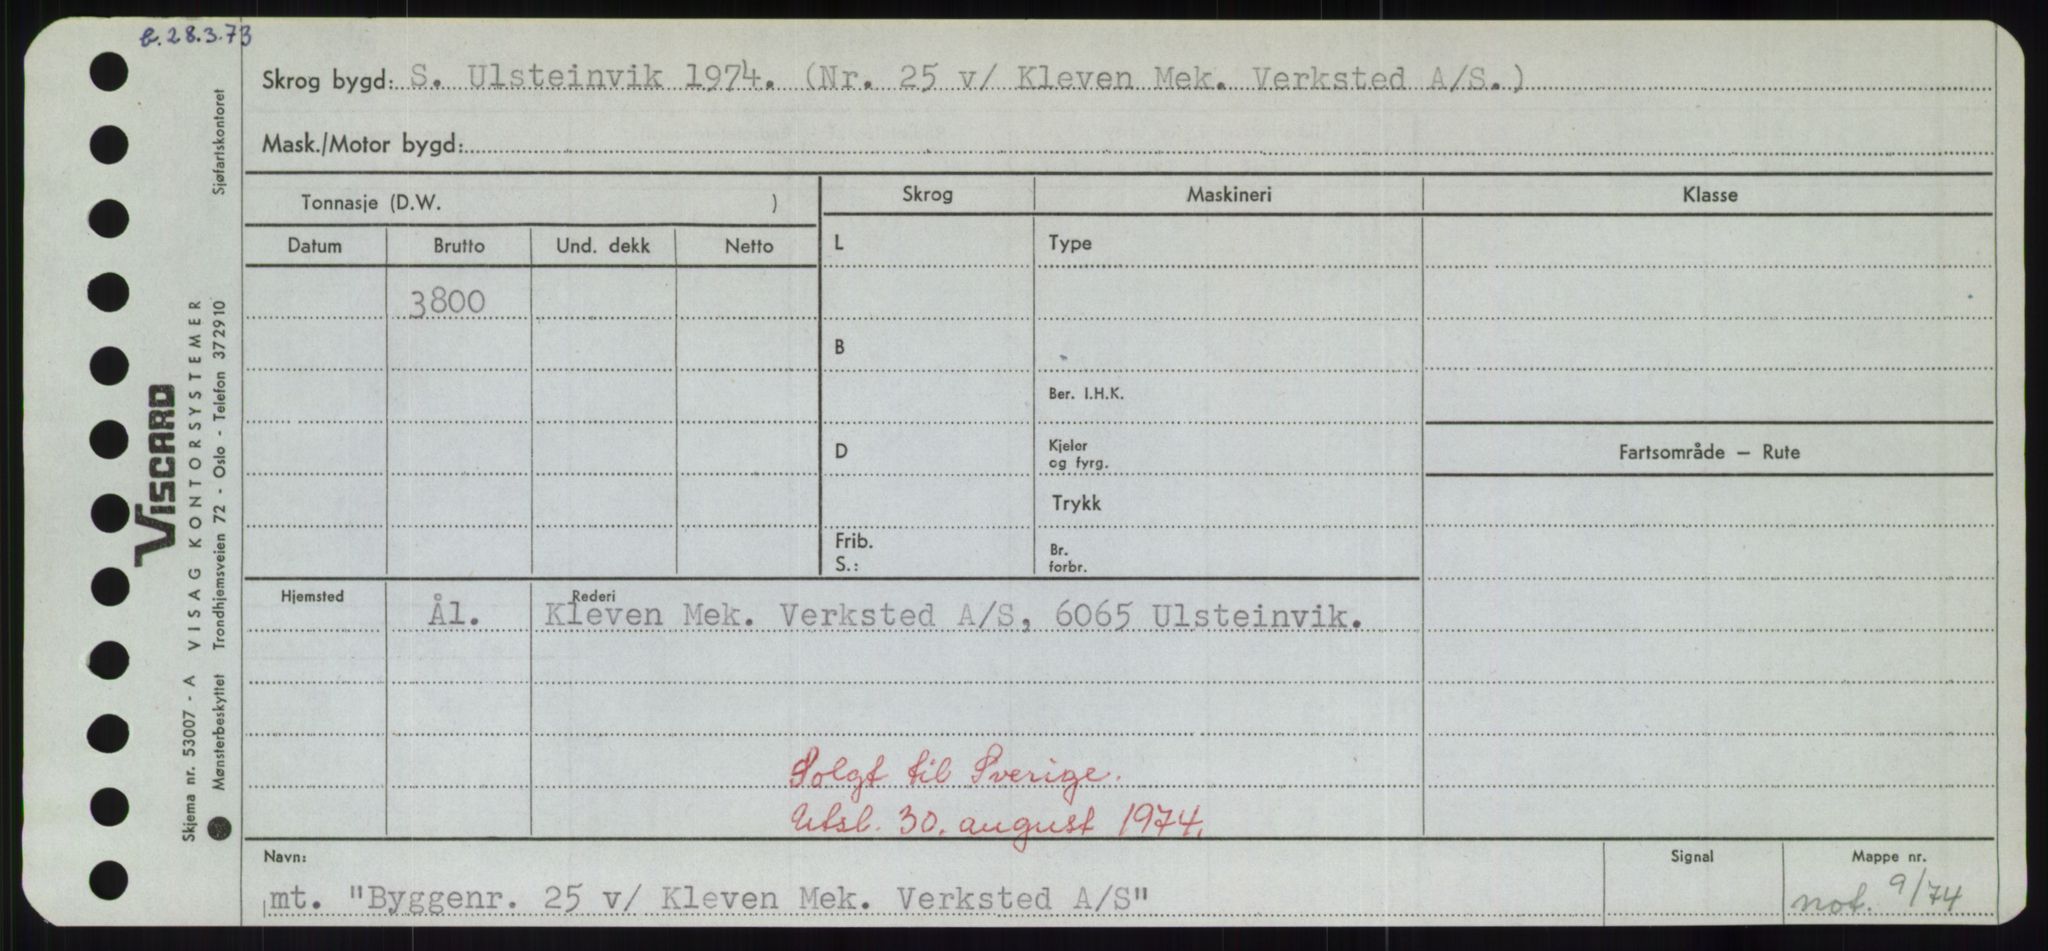 b. 28.3.73
Skrog bygd: S. Ulsteinvik 1974. (Nr. 25 v/ Kleven Mek. Verksted A/S.)
Mask./Motor bygd:
Tonnasje (D.W. )
Skrog Maskineri Klasse
Datum Brutto Und. dekk Netto
L Type
3800
B
Ber. I.H.K.
D Kjeler
og fyrg.
Fartsområde — Rute
Trykk
Frib. Br.
S.: forbr.
Hjemsted Rederi
Ål. Kleven Mek. Verksted A/S, 6065 Ulsteinvik.
Solgt til Sverige.
Utsl. 30. august 1974.
Navn: Signal Mappe nr.
mt. "Byggenr. 25 v/ Kleven Mek. Verksted A/S" not. 9/74
VISCARD
Skjema nr. 53007 - A VISAG KONTORSYSTEMER
Mønsterbeskyttet Trondhjemsveien 72 - Oslo - Telefon 372910 Sjøfartskontoret